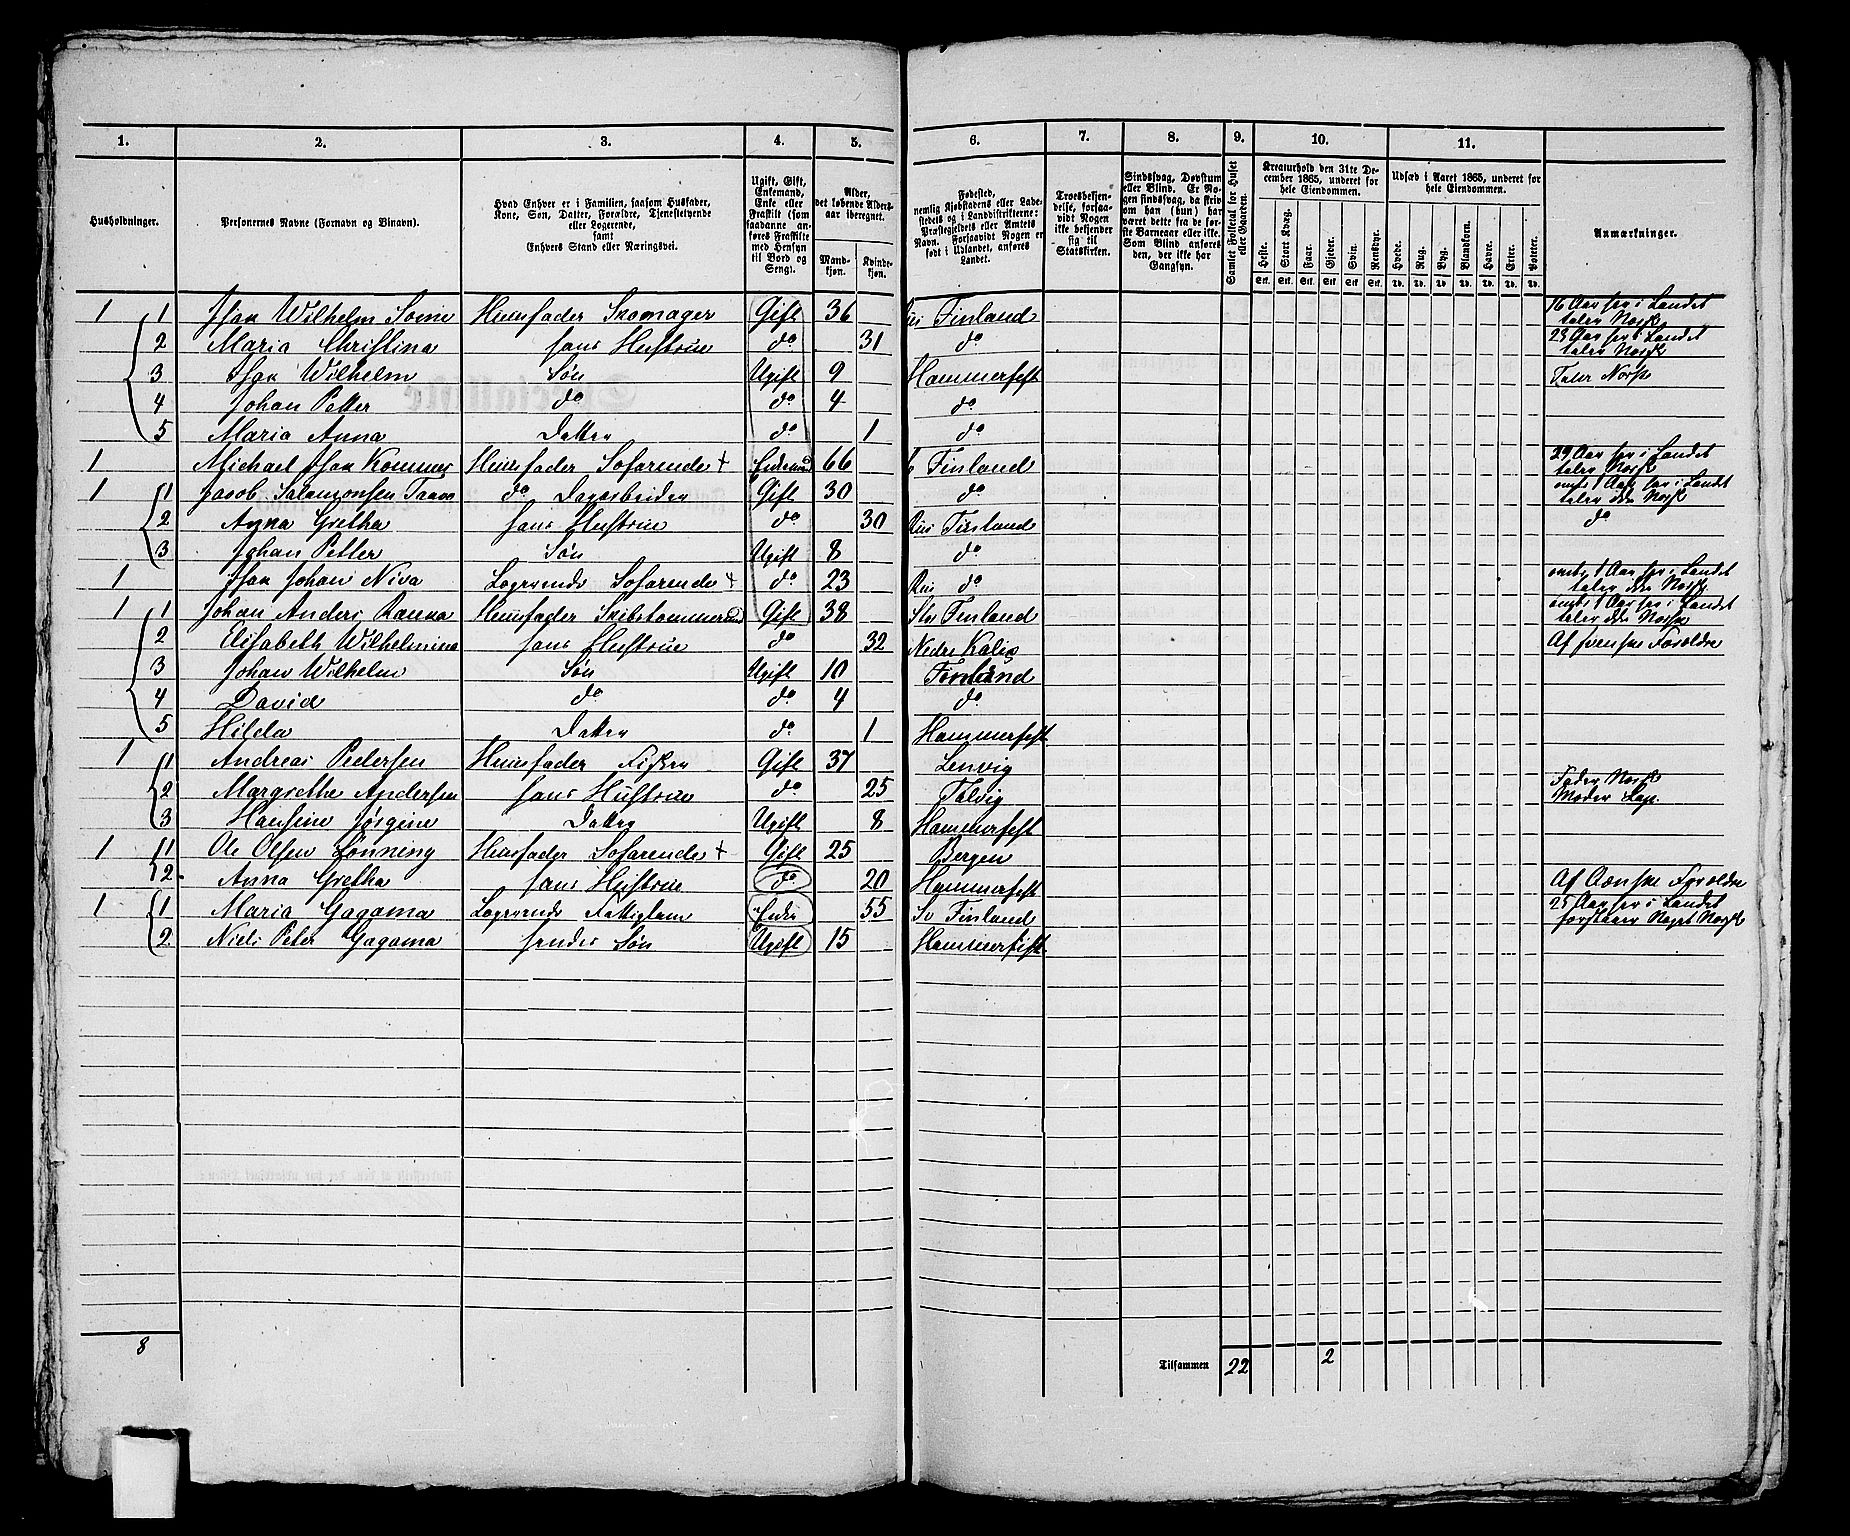 1. 2. 3. 4. 5. 6. 7. 8. 9. 10. 11.
Husholdninger.
Personernes Navne (Fornavn og Binavn).
Hvad Enhver er i Familien, saasom Husfader,
Kone, Søn, Datter, Forældre, Tjenestetyende
eller Logerende,
samt
Enhvers Stand eller Næringsvei.
Ugift, Gift,
Enkemand,
Enke eller
Fraskilt (som
saadanne an-
føres Fraskilte
med Hensyn
til Bord og
Seng).
Alder,
det løbende Alders-
aar iberegnet.
Mand-
kjøn.
Kvinde-
kjøn.
Fødested,
nemlig Kjøbstadens eller Lade-
stedets og i Landdistrikterne:
Præstegjeldets eller Amtets
Navn. Forsaavidt Nogen er
født i Udlandet, anføres
Landet.
Troesbekjen-
delse, forsaa-
vidt Nogen
ikke bekjender
sig til
Statskirken.
Sindssvag, Døvstum
eller Blind. Er No-
gen sindssvag, da skriv
om han (hun) har
været dette fra de før-
ste Barneaar eller ikke.
Som Blind anføres
den, der ikke har
Gangsyn.
Samlet Folketal for Huset
eller Gaarden.
Kreaturhold den 31te De-
cember 1865, underet for
hele Eiendommen.
Heste. Stort Kvæg. Faar. Gjeder. Svin. Rensdyr.
Stk. Stk. Stk. Stk. Stk. Stk.
Udsæd i Aaret 1865, underet for
hele Eiendommen.
Hvede. Rug. Byg. Blandkorn. Havre. Erter. Poteter.
Td. Td. Td. Td. Td. Td. Td.
Anmærkninger.
1 1 Isak Wilhelm Husfader Skomager Gift 36 Finland 16 Aar her i Landet taler Norsk
2 Maria Christina hans Hustrue do 31 do 23 Aar her i Landet taler Norsk
3 Isak Wilhelm Søn Ugift 9 Hammerfest Taler Norsk
4 Johan Petter do do 4 do
5 Maria Anna Datter do 1 do
1 Michael Isak Husfader Søfarende + Enkemand 66 Finland 29 Aar her i Landet taler Norsk
1 1 Jacob Salamonsen do Dagarbeider Gift 30 do omtr 1 Aar her i Landet taler ikke Norsk
2 Anna Gretha hans Hustrue do 30 Finland do
3 Johan Petter Søn Ugift 8 do
1 Isak Johan Niva Logerende Søfarende + do 23 do omtr 1 Aar her i Landet taler ikke Norsk
1 1 Johan Anders Husfader Skibstømmermand Gift 38 Finland omtr 1 Aar her i Landet taler ikke Norsk
2 Elisabeth Wilhelmina hans Hustrue do 32 Nedre Kalix Af svenske Forældre
3 Johan Wilhelm Søn Ugift 10 Finland
4 David do do 4 do
5 Hilda Datter do 1 Hammerfest
1 1 Andreas Pedersen Husfader Fisker Gift 37 Lenvig
2 Margrethe Andersen hans Hustrue do 25 Talvig Fader Norsk Moder Lap.
3 Hansine Jørgine Datter Ugift 8 Hammerfest
1 1 Ole Olsen Lønning Husfader Søfarende + Gift 25 Bergen
2. Anna Gretha hans Hustrue do 20 Hammerfest Af Forældre
1 1 Maria Gagama Logerende Fattiglem Enke 55 Finland 25 Aar her i Landet forstaaer Noget Norsk
2 Niels Peter Gagama hendes Søn Ugift 15 Hammerfest
8 Tilsammen 22 2